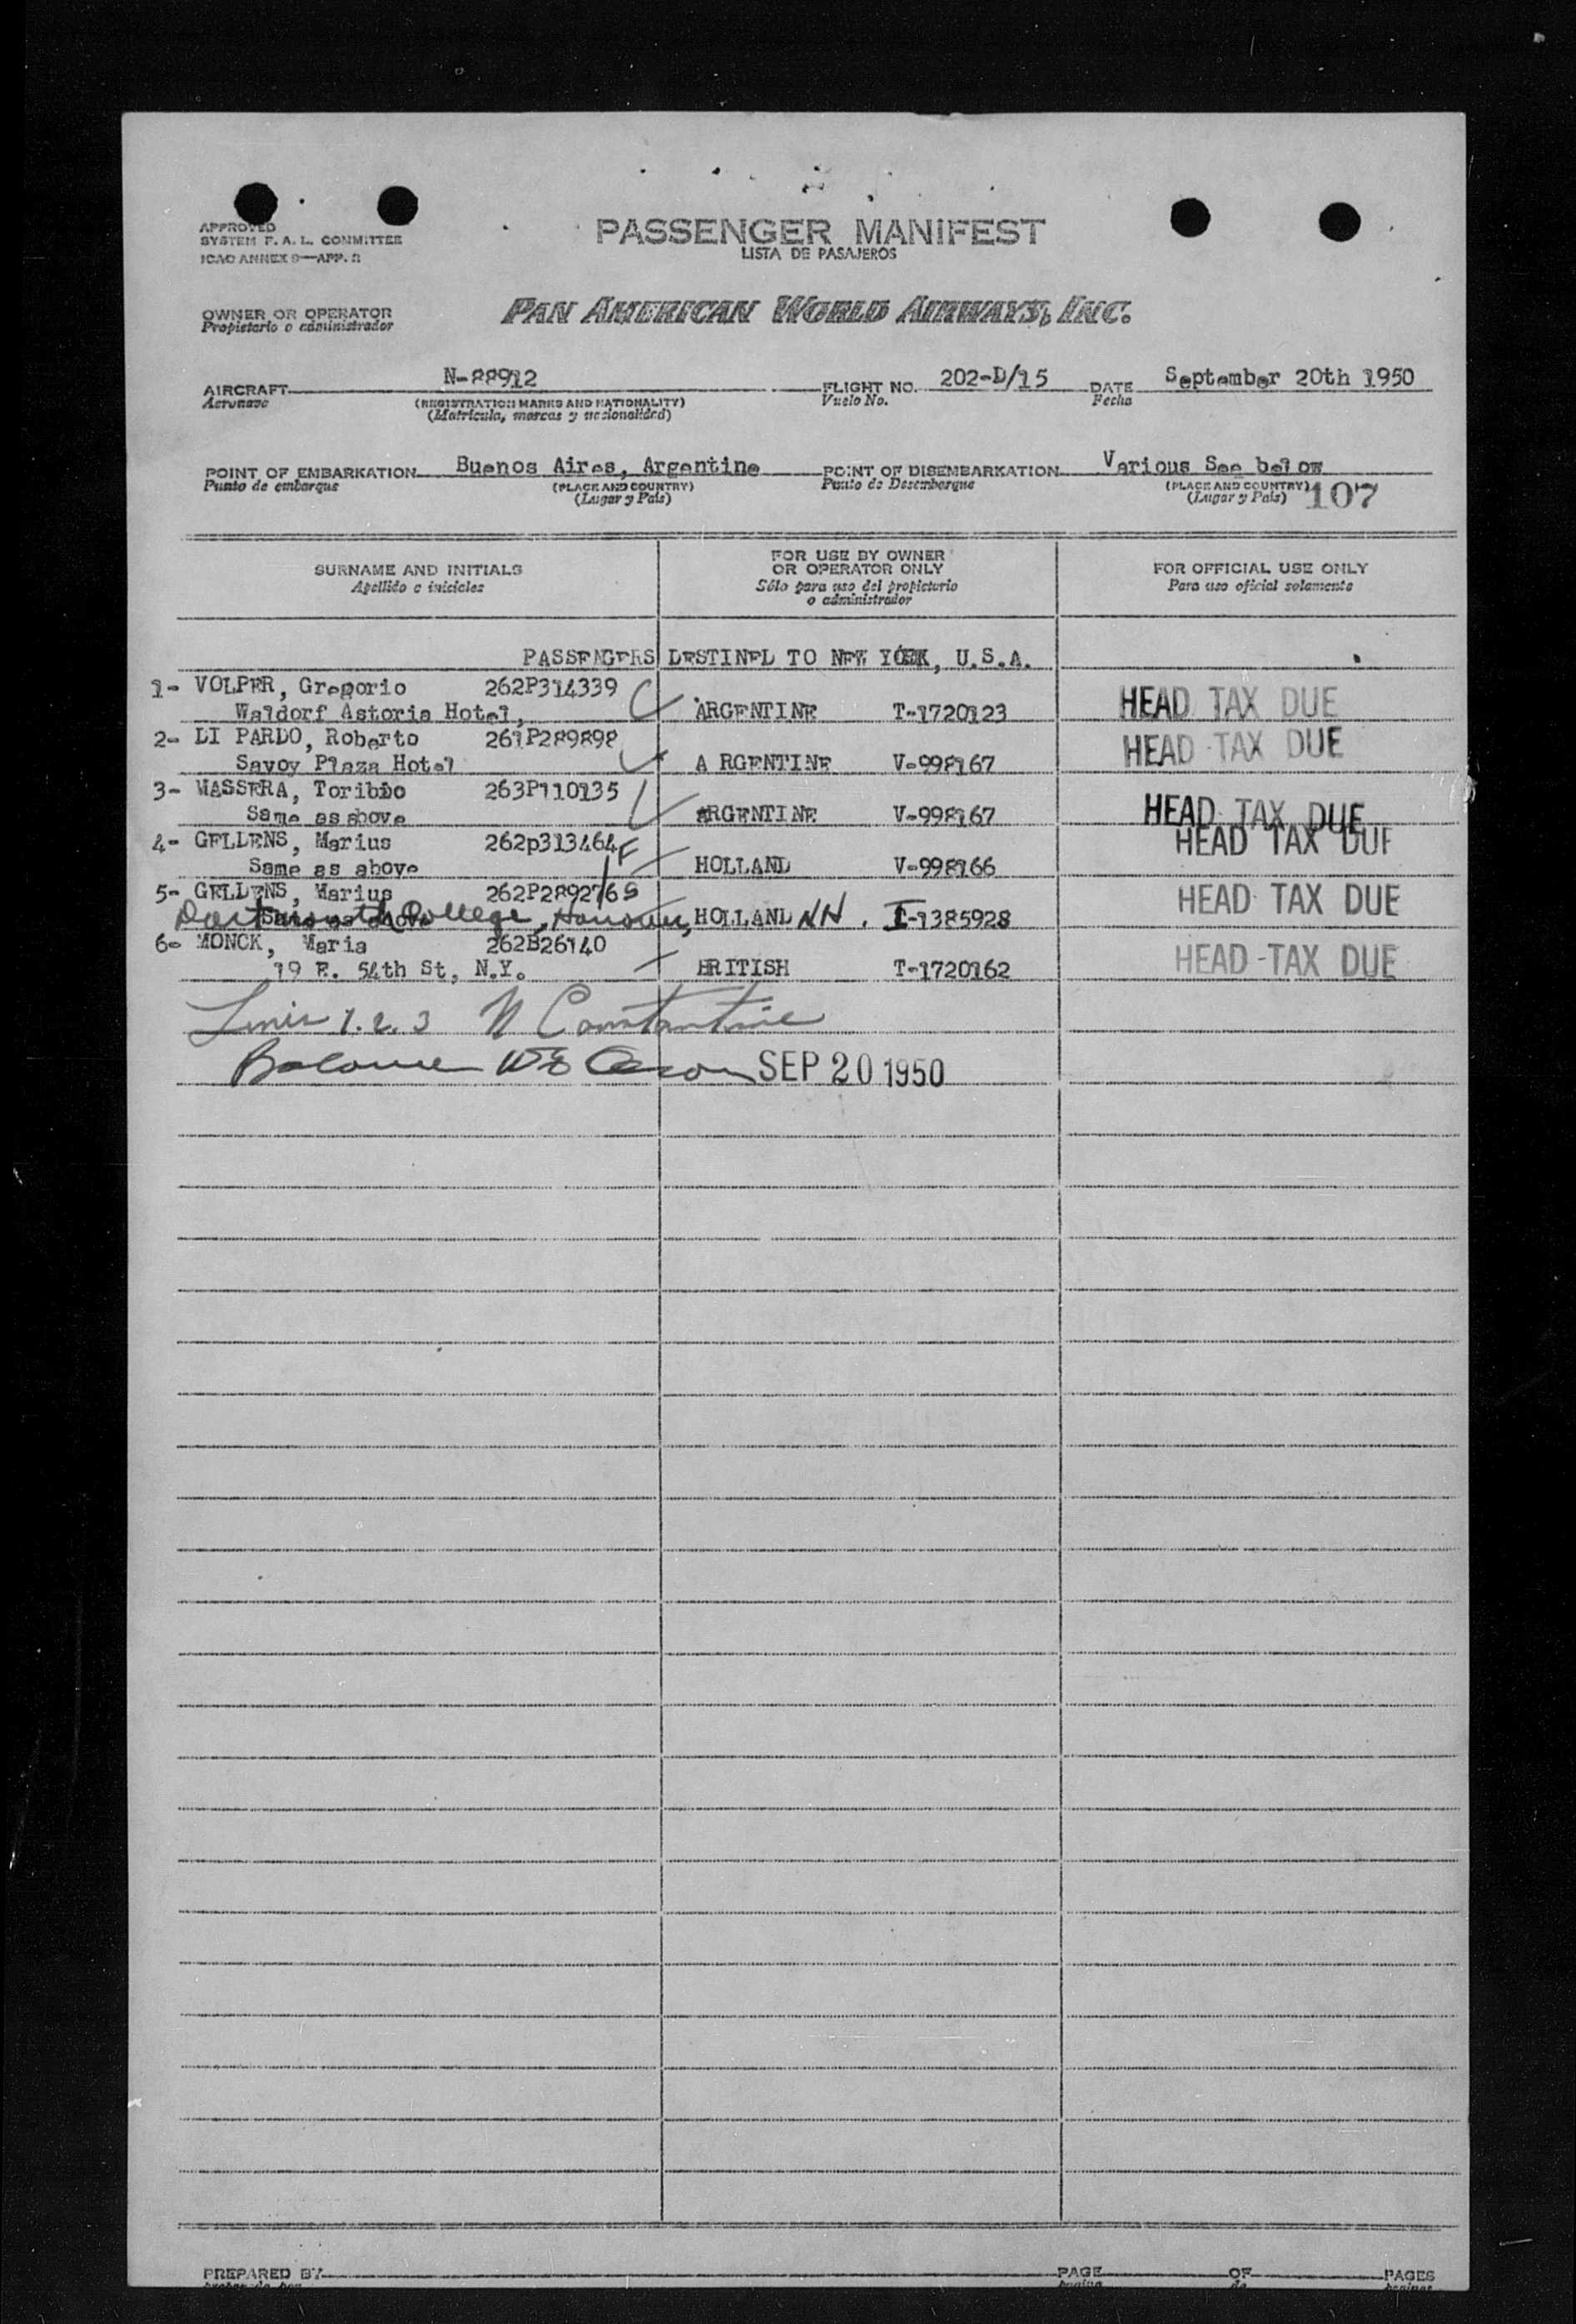 APPROVED
SYSTEM F. A. L. COMMITTEE
ICAO ANNEX 9—APP. 2
PASSENGER MANIFEST
LISTA DE PASAJEROS
OWNER OR OPERATOR
Propietario o administrador
PAN AMERICAN WORLD AIRWAYS, INC.
AIRCRAFT N-88912 FLIGHT NO. 202-D/15 DATE September 20th 1950
Aeronave (REGISTRATION MARKS AND NATIONALITY) Vuelo No. Fecha
(Matricula, marcas y nacionalidad)
POINT OF EMBARKATION Buenos Aires, Argentine POINT OF DISEMBARKATION Various See below
Punto de embarque (PLACE AND COUNTRY) Punto de Desembarque (PLACE AND COUNTRY)
(Lugar y País) (Lugar y País) 107
SURNAME AND INITIALS FOR USE BY OWNER OR OPERATOR ONLY FOR OFFICIAL USE ONLY
Apellido e iniciales Sólo para uso del propietario o administrador Para uso oficial solamente
PASSENGERS DESTINED TO NEW YORK, U.S.A.
1- VOLPER, Gregorio 262P314339
Waldorf Astoria Hotel, ARGENTINE T-1720123 HEAD TAX DUE
2- LI PARDO, Roberto 261P289898 HEAD TAX DUE
Savoy Plaza Hotel A RGENTINE V-998167
3- MASSERA, Toribio 263P110135
Same as above ARGENTINE V-998167 HEAD TAX DUE
4- GELLENS, Marius 262p313464 F HEAD TAX DUE
Same as above HOLLAND V-998166
5- GELLENS, Marius 262P289276 S HEAD TAX DUE
Dartmouth College, Hanover, HOLLAND NH. I-1385928
6- MONCK, Maria 262B26140 HEAD TAX DUE
19 E. 54th St, N.Y. BRITISH T-1720162
Lines 1.2.3 N Constantine
Balance SEP 20 1950
PREPARED BY PAGE OF PAGES